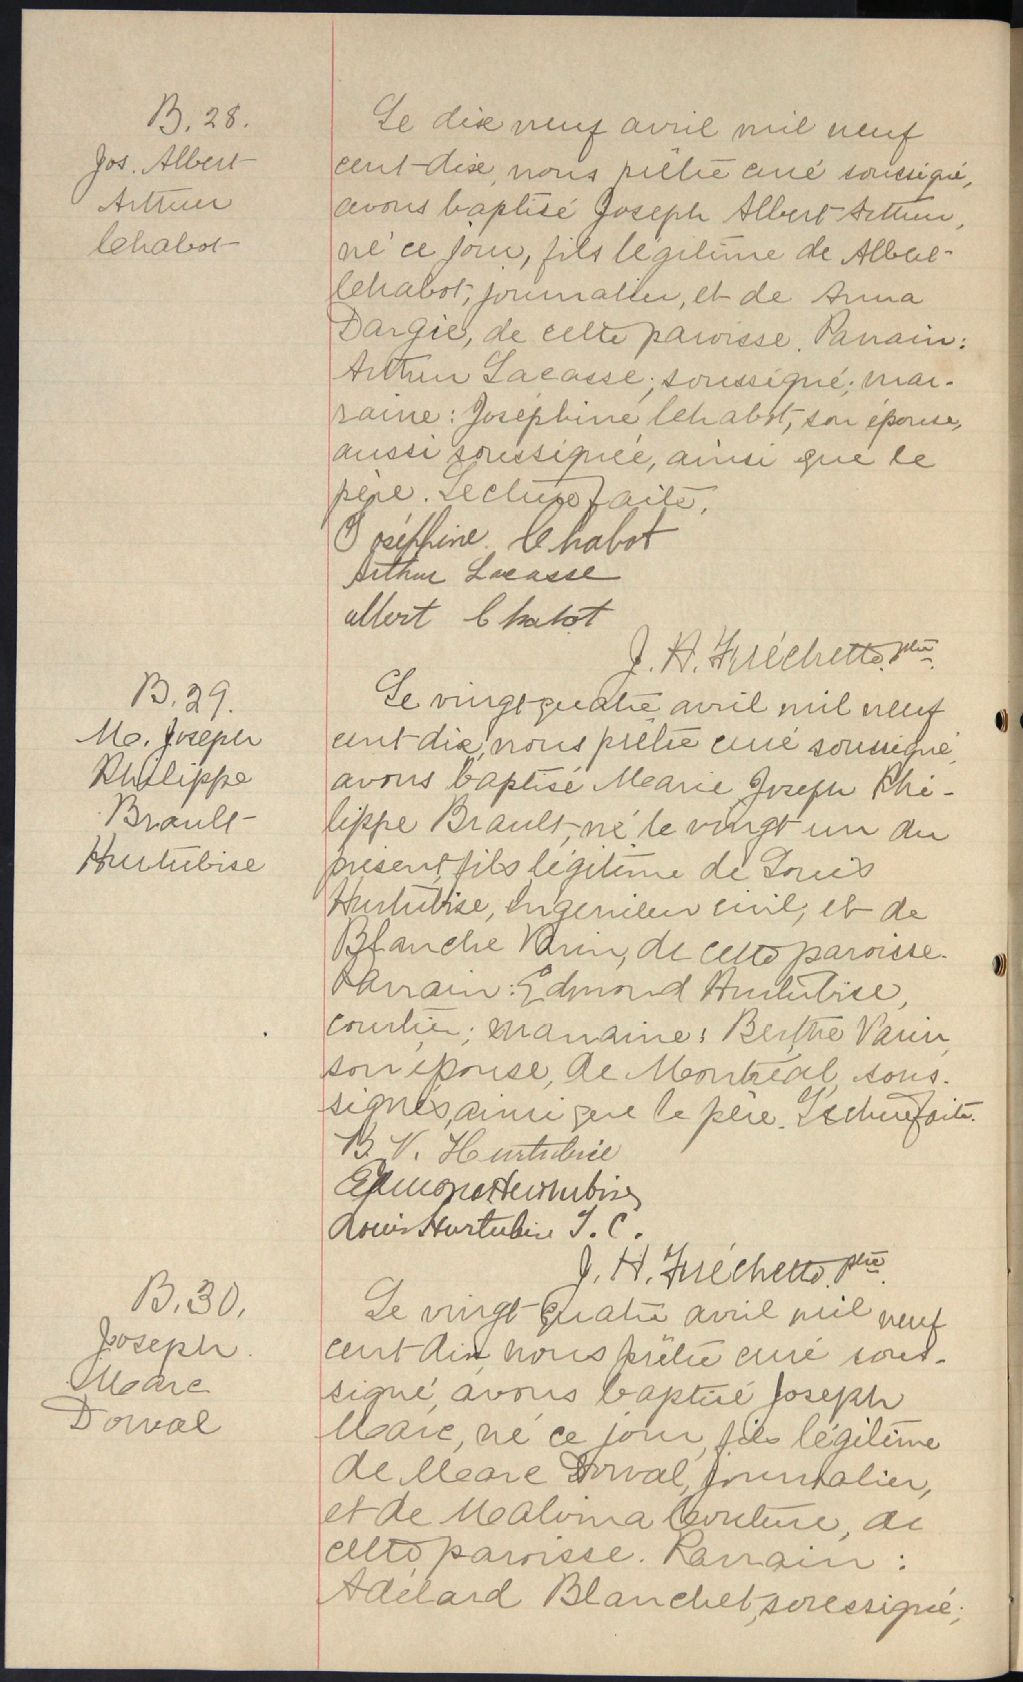 B. 28.
Jos. Albert
Arthur
Chabot
Le dix neuf avril mil neuf
cent-dix, nous prêtre curé soussigné,
avons baptisé Joseph Albert Arthur,
né ce jour, fils légitime de Albert
Chabot, journalier, et de Anna
Dargie, de cette paroisse. Parrain:
Arthur Lacasse, soussigné; mar-
raine: Joséphine Chabot, son épouse,
aussi soussignée, ainsi que le
père. Lecture faite.
Joséphine Chabot
Arthur Lacasse
Albert Chabot
J. H. Fréchette. ptre
B. 29.
M. Joseph
Philippe
Brault-
Hurtubise
Le vingt-quatre avril mil neuf
cent-dix, nous prêtre curé soussigné,
avons baptisé Marie Joseph Phi-
lippe Brault, né le vingt un du
présent, fils légitime de Louis
Hurtubise, Ingénieur civil, et de
Blanche Varin, de cette paroisse.
Parrain: Edmond Hurtubise,
courtier; marraine: Berthe Varin,
son épouse, de Montréal, sous-
signés, ainsi que le père. Lecture faite.
B. V. Hurtubise
Edmond Hurtubise
Louis Hurtubise I. C.
J. H. Fréchette. ptre
B. 30.
Joseph
Marc
Dorval
Le vingt-quatre avril mil neuf
cent-dix, nous prêtre curé sous-
signé, avons baptisé Joseph
Marc, né ce jour, fils légitime
de Marc Dorval, journalier,
et de Malvina Couture, de
cette paroisse. Parrain:
Adélard Blanchet, soussigné;